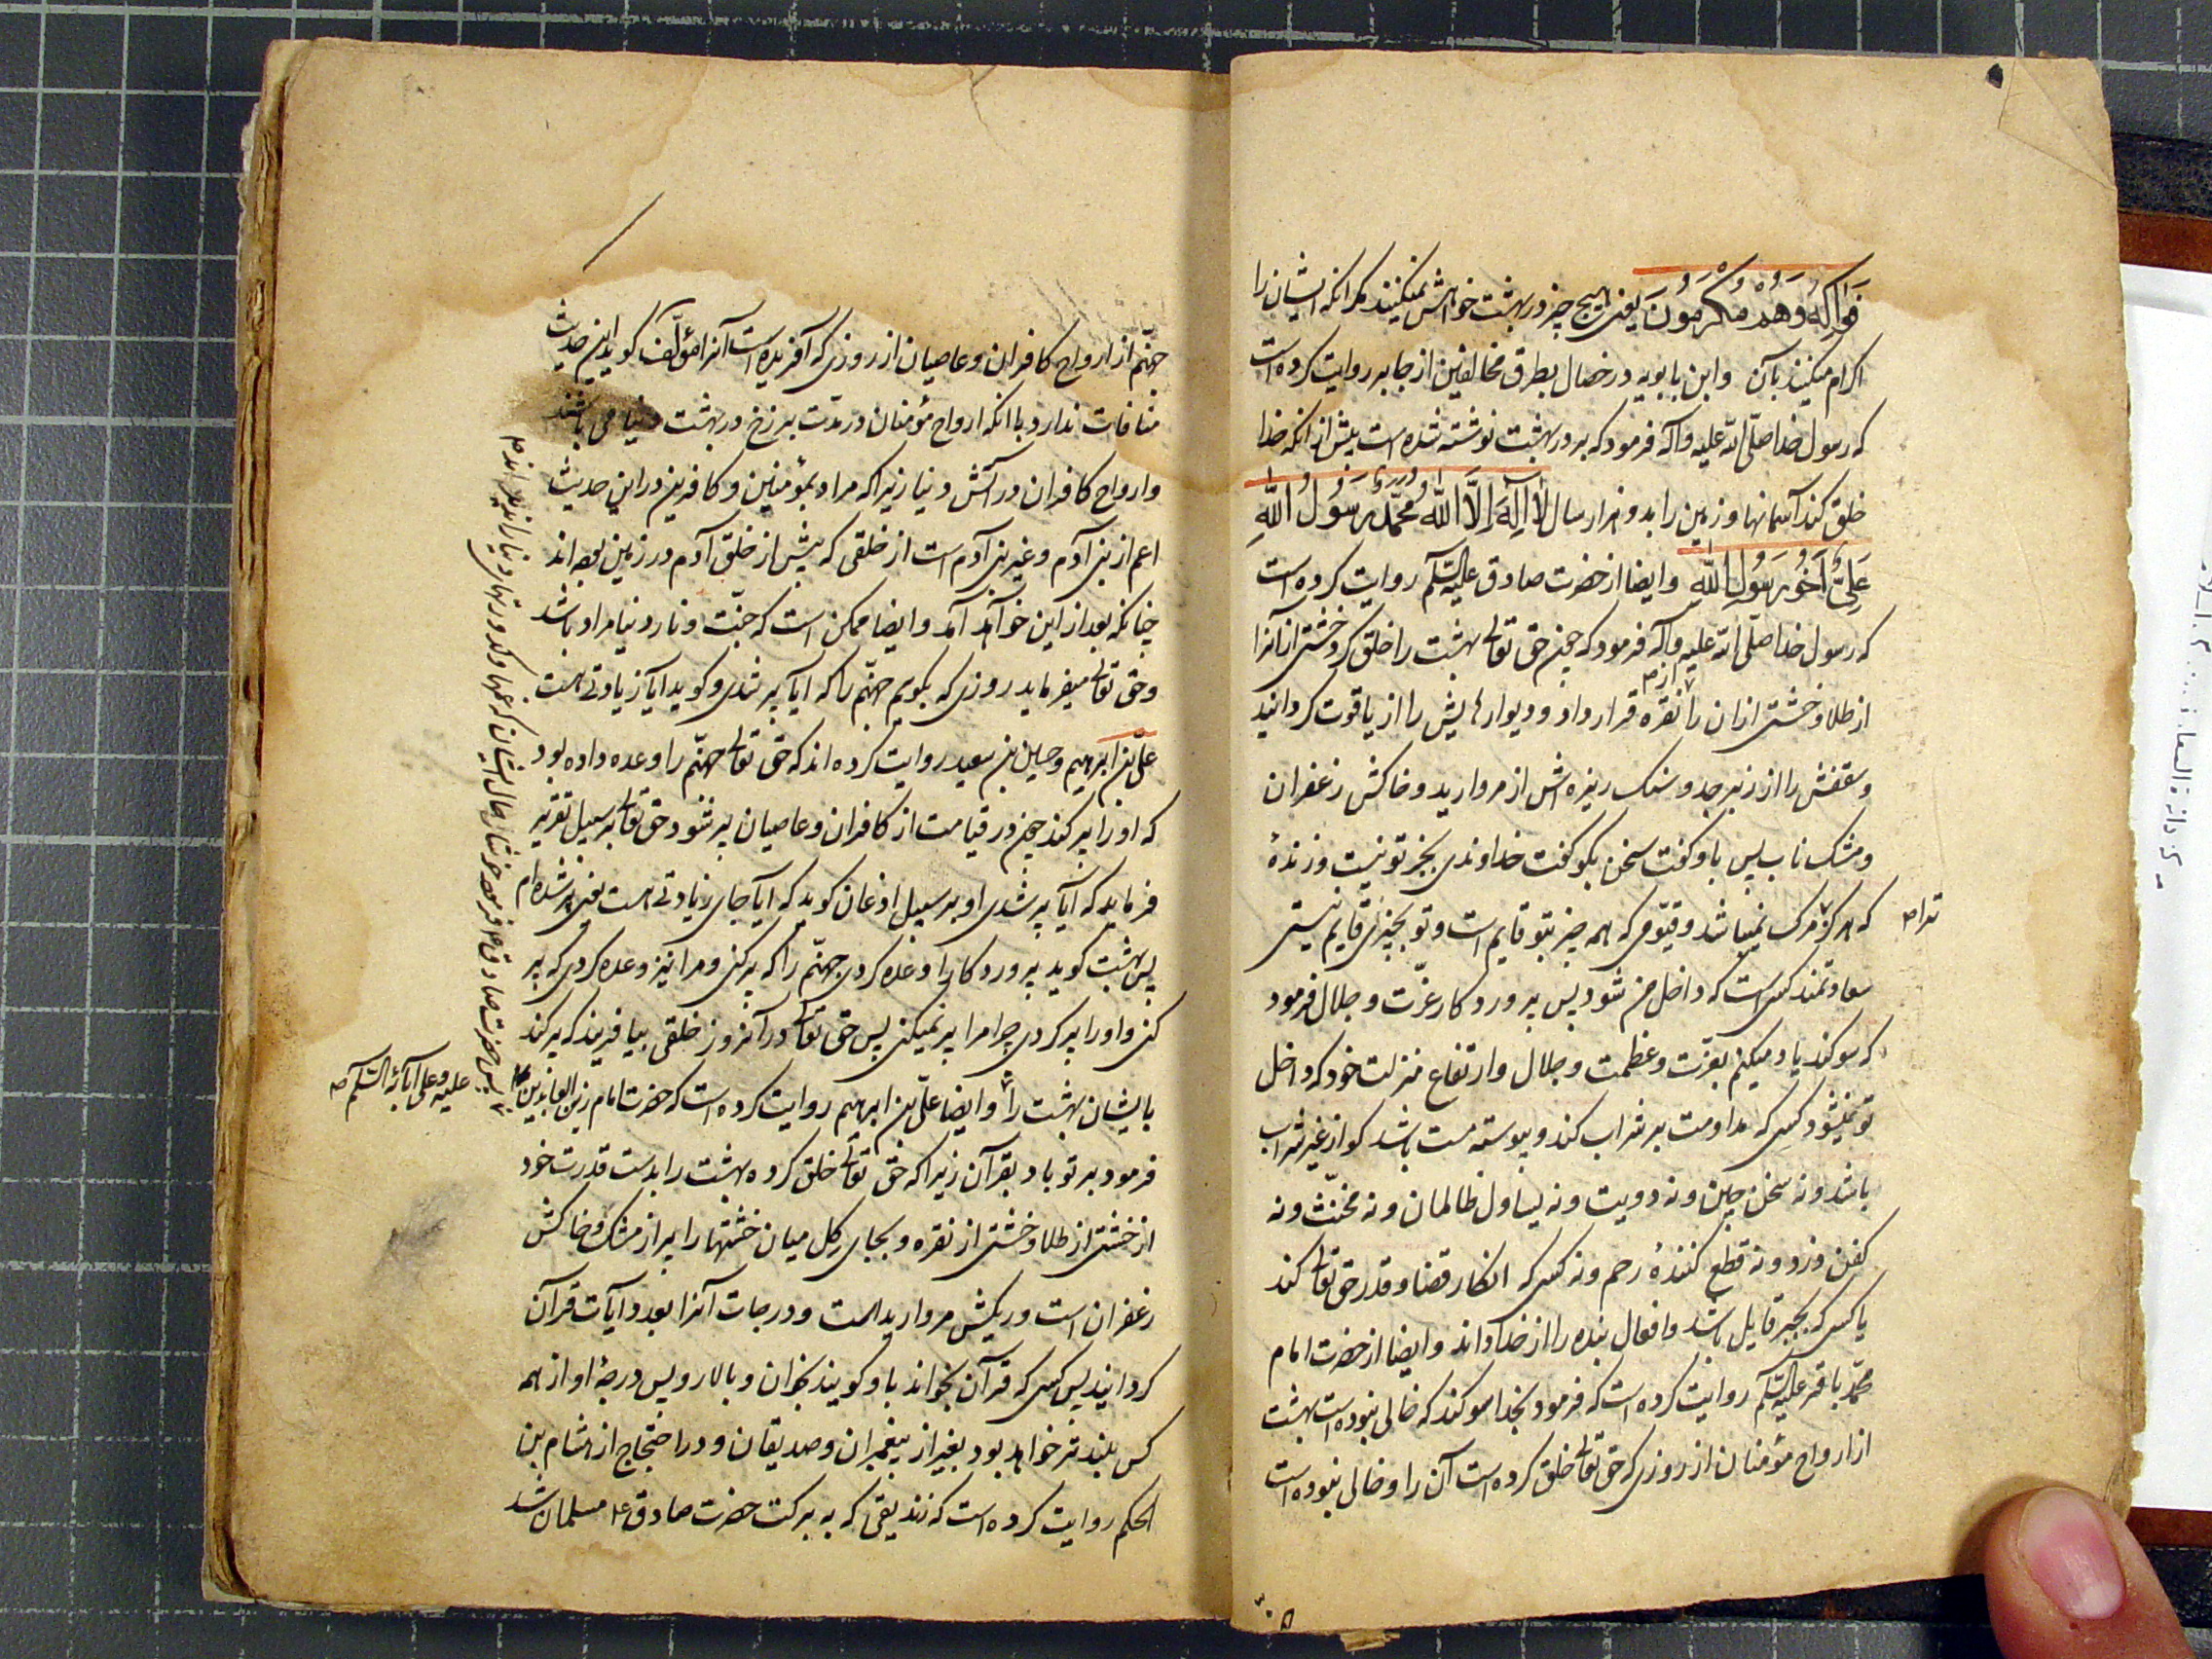 فَوَاكِهُ وَهُمْ مُكْرَمُونَ یعنی هیچ چیز در بهشت خواهش نمیکنند مکر انکه ایشان را
اکرام میکنند بآن وابن بابویه در خصال بطرق مخالفین از جابر روایت کرده است
که رسول خدا صلّی الله علیه وآله فرمود که بر در بهشت نوشته شده است پیش از انکه خدا
خلق کند آسمانها وزمین را بدو هزار سال لَا اِلٰهَ اِلَّا اللّٰهُ مُحَمَّدٌ رَسُولُ اللّٰهِ
عَلِیٌّ اَخُو رَسُولِ اللّٰهِ وایضا از حضرت صادق علیه السّلم روایت کرده است
که رسول خدا صلّی الله علیه وآله فرمود که چون حق تعالی بهشت را خلق کرد خشتی از انرا
از طلا وخشتی از ان را از نقره قرار داد ودیوارهایش را از یاقوت کردانید
وسقفش را از زبرجد وسنک ریزه اش از مروارید وخاکش زعفران
ومشک ناب پس باو کفت سخن بکو کفت خداوندی بجز تو نیست وزندهٔ
که هرکز ترا مرک نمیباشد وقیّومی که همه چیز بتو قایم است وتو بچیزی قایم نیستی
سعادتمند کسی است که داخل من شود پس پروردکار عزّت وجلال فرمود
که سوکند یاد میکنم بعزّت وعظمت وجلال وارتفاع منزلت خود که داخل
تو نمیشود کسی که مداومت بر شراب کند وپیوسته مست باشد کو از غیر شراب
باشد ونه سخن چین ونه دویت ونه یساول ظالمان ونه مخنّث ونه
کفن دزد ونه قطع کنندهٔ رحم ونه کسی که انکار قضا وقدر حق تعالی کند
یا کسی که بجبر قایل باشد وافعال بنده را از خدا داند وایضا از حضرت امام
محمّد باقر علیه السّلم روایت کرده است که فرمود بخدا سوکند که خالی نبوده است بهشت
از ارواح مؤمنان از روزی که حق تعالی خلق کرده است آن را وخالی نبوده است
جهنّم از ارواح کافران وعاصیان از روزی که آفریده است آنرا مؤلّف کوید این حدیث
منافات ندارد با انکه ارواح مؤمنان در مدّت برزخ در بهشت دنیا می باشند
وارواح کافران در آتش دنیا زیرا که مراد بمؤمنین وکافرین در این حدیث
اعم از بنی آدم وغیر بنی آدم است از خلقی که پیش از خلق آدم در زمین بوده اند
چنانکه بعد از این خواهد آمد وایضا ممکن است که جنّت ونار دنیا مراد باشد
وحق تعالی میفرماید روزی که بکویم جهنّم را که آیا پر شدی وکوید آیا زیادتی هست
علی بن ابرهیم وحسین بن سعید روایت کرده اند که حق تعالی جهنّم را وعده داده بود
که او را پر کند چون در قیامت از کافران وعاصیان پر شود حق تعالی بر سبیل تقریر
فرماید که آیا پر شدی او بر سبیل اذعان کوید که آیا جای زیادتی هست یعنی پر شده ام
پس بهشت کوید پروردکارا وعده کردی جهنّم را که پر کنی ومرا نیز وعده کردی که پر
کنی واو را پر کردی چرا مرا پر نمیکنی پس حق تعالی در آنروز خلقی بیافریند که پر کند
بایشان بهشت را وایضا علی بن ابرهیم روایت کرده است که حضرت امام زین العابدین
علیه وعلی آبائه السّلم
پس حضرت صادق ع فرمود خوشا حال ایشان که غمها وکدورتهای دنیا را ندیده اند
فرمود بر تو باد بقرآن زیرا که حق تعالی خلق کرده بهشت را بدست قدرت خود
از خشتی از طلا وخشتی از نقره وبجای کل میان خشتها را پر از مشک وخاکش
زعفران است وریکش مروارید است ودرجات آنرا بعدد آیات قرآن
کردانید پس کسی که قرآن بخواند باو کویند بخوان وبالا رو پس درجهٔ او از همه
کس بلندتر خواهد بود بغیر از پیغمبران وصدیقان ودر احتجاج از هشام بن
الحکم روایت کرده است که زندیقی که به برکت حضرت صادق ع مسلمان شد